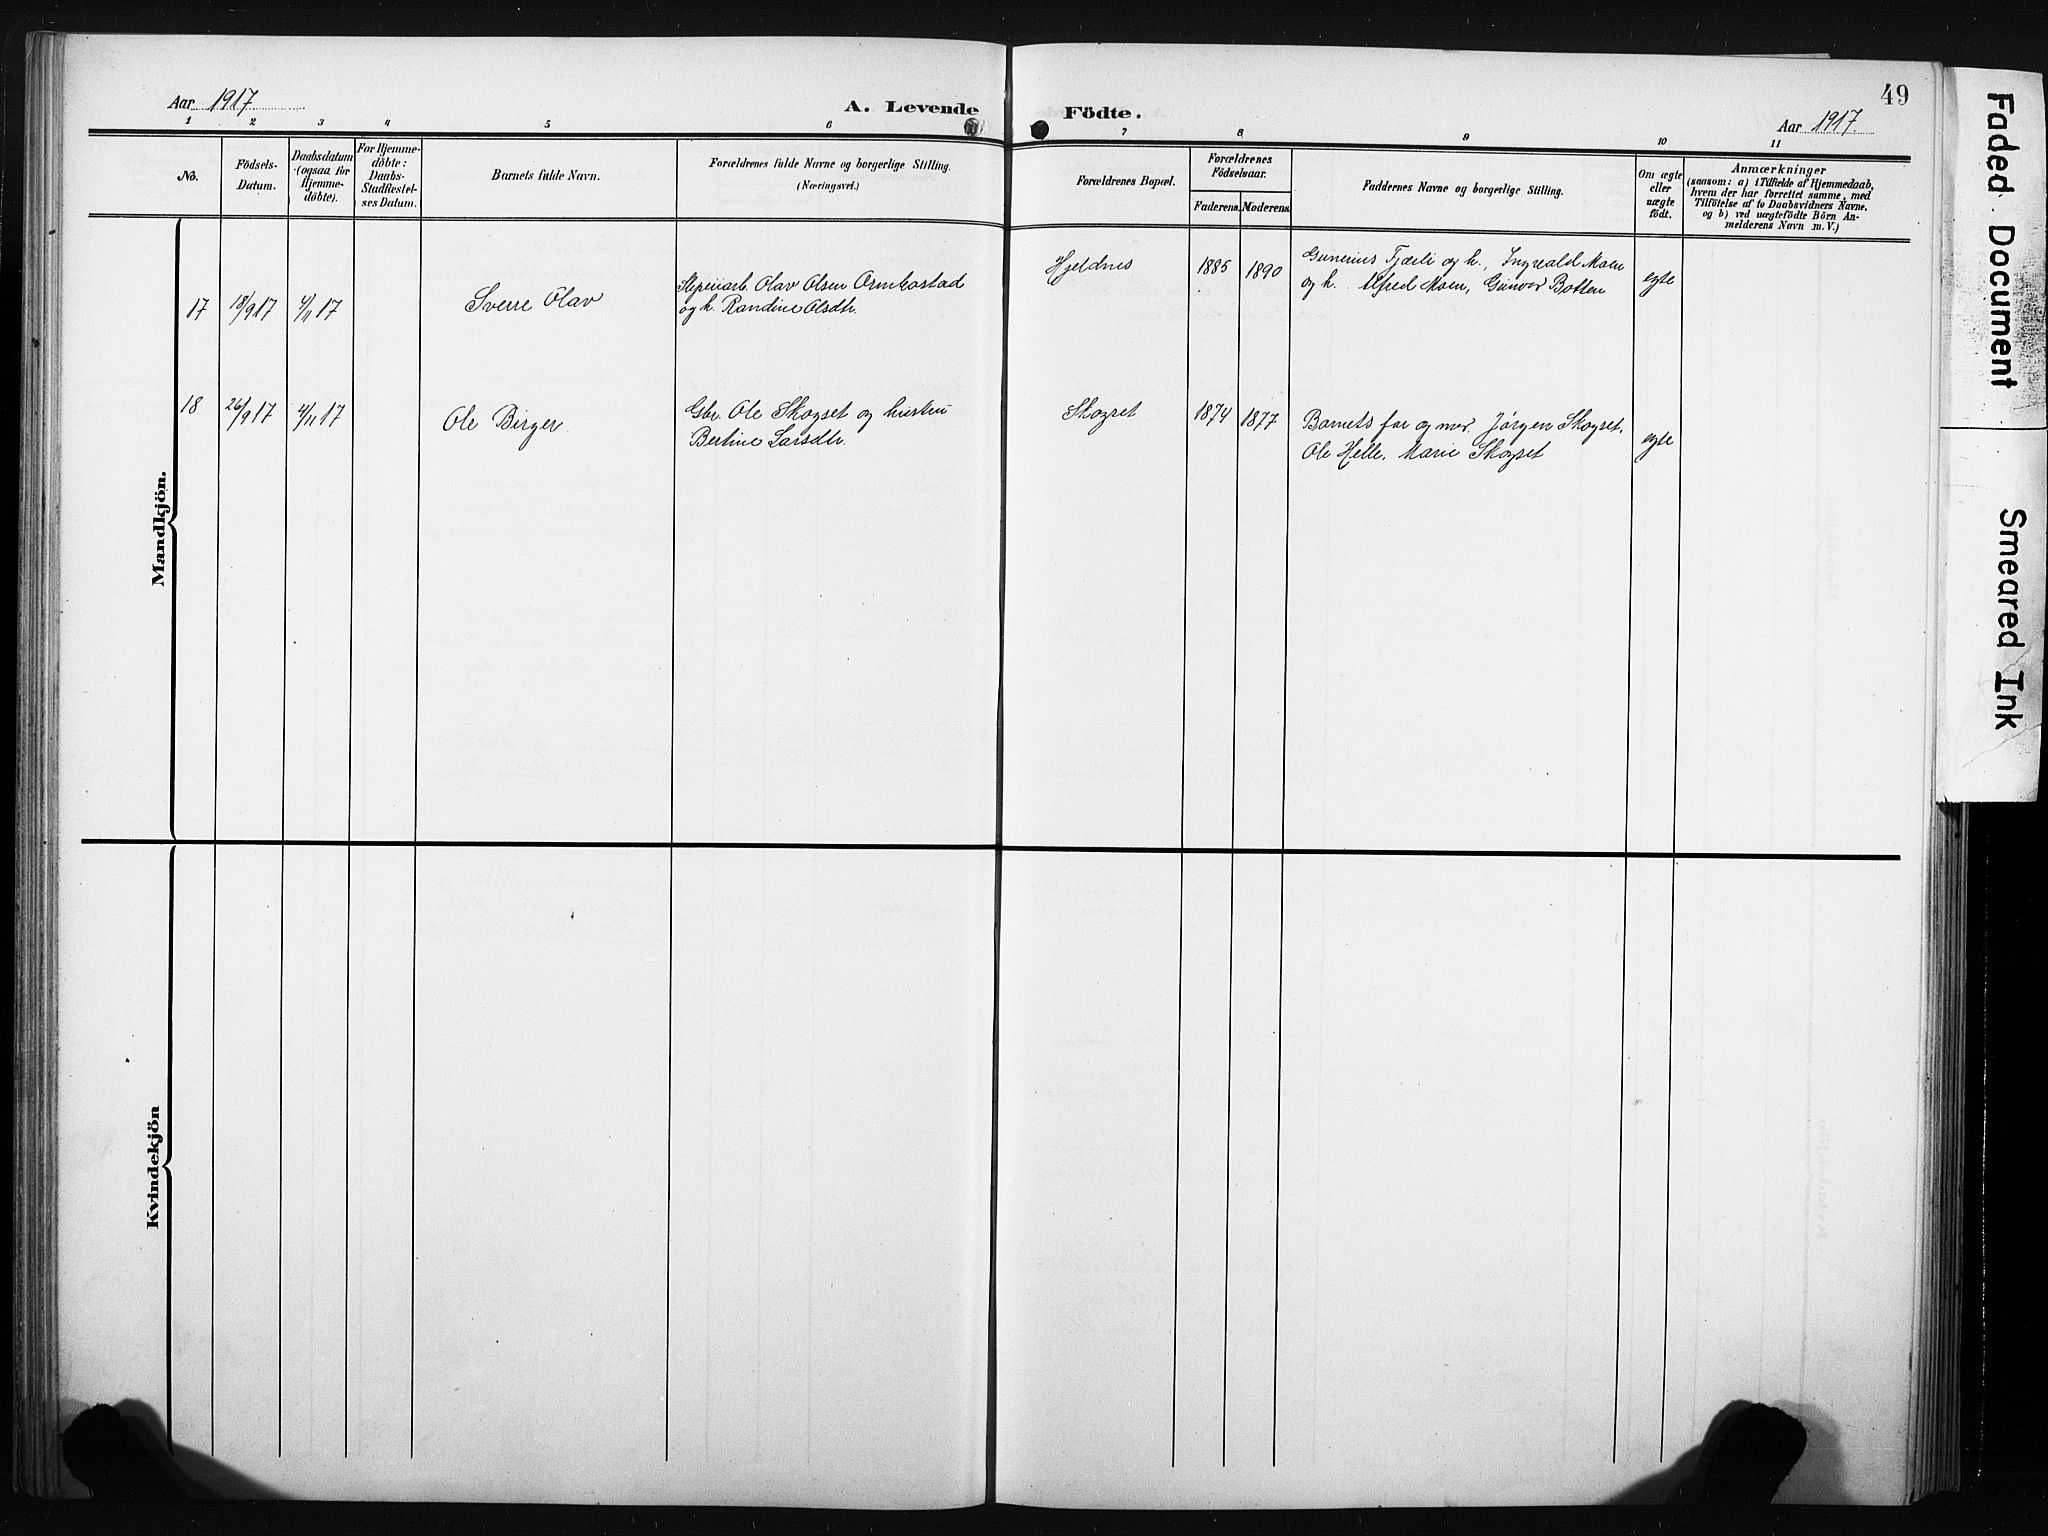 Aar 1917
A. Levende
Födte.
49
Aar 1917.
1 2 3 4 5 6 7 8 9 10 11
No.
Födsels-
Datum.
Daabsdatum
(ogsaa for
Hjemme-
døbte).
For Hjemme-
døbte:
Daabs-
Stadfæstel-
ses Datum.
Barnets fulde Navn.
Forældrenes fulde Navne og borgerlige Stilling.
(Næringsvei.)
Forældrenes Bopæl.
Forældrenes
Födselsaar.
Faderens.
Moderens.
Faddernes Navne og borgerlige Stilling.
Om ægte
eller
uægte
født.
Anmærkninger
(saasom: a) i Tilfælde af Hjemmedaab,
hvem der har forrettet samme, med
Tilföielse af to Daabsvidners Navne,
og b) ved uægtefödte Börn An-
melderens Navn m. V.)
Mandkjön.
17
18/9 17
4/11 17
Sverre Olav
Olav Olsen Ormbostad
og h. Randine Olsdtr.
Hjeldnes
1885
1890
Gunerius Fjærli og h., Ingvald Moen
og h. Alfred Moen, Gunvor Botten
egte
18
26/9 17
4/11 17
Ole Birger
Gbr. Ole Skogset og hustru
Bertine Larsdtr.
Skogset
1874
1877
Barnets far og mor. Jørgen Skogset.
Ole Helle, Marie Skogset
egte
Kvindekjön
Faded Document
Smeared Ink